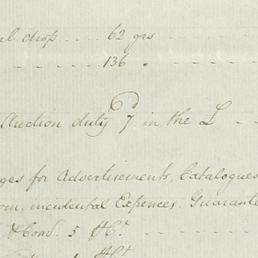 drop .... 62 grs
136 "
Auction duty 7d in the £ --
ges for Advertisements, Catalogues
om, incidental Expences. Guarantee
& Cond. 5